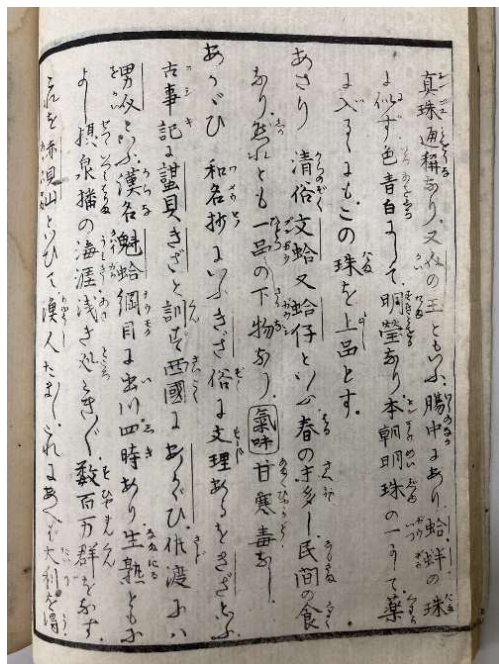 真珠通称なり又仮の王ともいふ腸中にあり蛤蚌の珠
に似ず色青白にして明瑩あり本朝明珠の一にて薬
に入るゝにもこの珠を上品とす
あさり 清俗文蛤又蛤仔といふ春の末多し民間の食
なり然れとも一品の下物なり 氣味 甘寒毒なし
あかゞひ 和名抄にいふきざ俗に文理あるをきざといふ
古事記に蚶貝きざと訓ず西國にあかゞひ佐渡には
男貝といふ漢名魁蛤綱目に出川四時あり生熟ともに
よし摂泉播の海涯浅き処ときゞ数百万群をなす
これを赤貝山といひて漁人たまこれにあへば大利を得